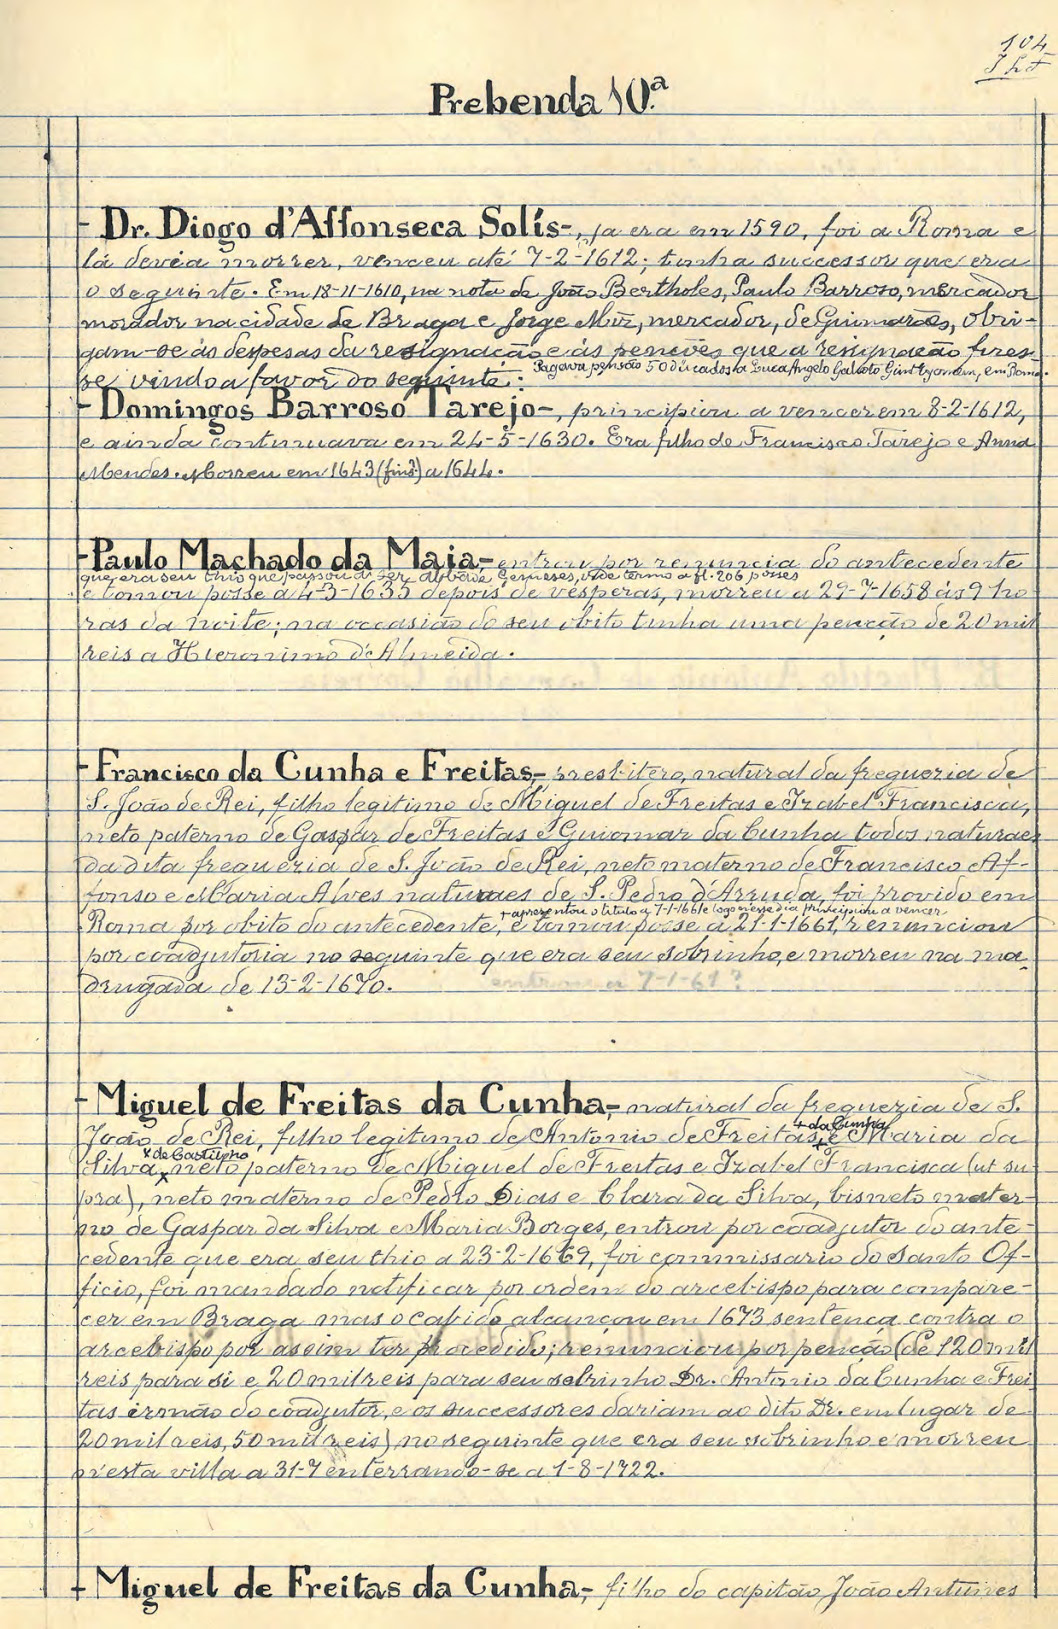 104
Prebenda 10.ª
- Dr. Diogo d'Affonseca Solís-, ja era em 1590, foi a Roma e
lá devia morrer, venceu até 7-2-1612; tinha successor que era
o seguinte. Em 18-11-1610, na nota de João Bertholes, Paulo Barroso, mercador
morador na cidade de Braga e Jorge Miz, mercador, de Guimarães, obri-
gam-se ás despesas da resignação e ás penções que a resignação fires-
Pagava pensão 50 ducados a Luca Angelo Galioto em Roma.
se vindo a favor do seguinte:
- Domingos Barroso Tarejo-, principiou a vencer em 8-2-1612,
e ainda continuava em 24-5-1630. Era filho de Francisco Tarejo e Anna
Mendes. Morreu em 1643 (fins?) a 1644.
- Paulo Machado da Maia- entrou por renuncia do antecedente
que era seu thio que passou a ser Abbade Gemeses, vide termo a fl. 206 posses
e tomou posse a 4-3-1635 depois de vesperas, morreu a 29-7-1658 ás 9 ho
ras da noite; na occasião do seu obito tinha uma penção de 20 mil
reis a Hieronimo d'Almeida.
- Francisco da Cunha e Freitas- presbitero, natural da freguezia de
S. João de Rei, filho legitimo de Miguel de Freitas e Izabel Francisca,
neto paterno de Gaspar de Freitas e Guiomar da Cunha todos naturaes
da dita freguezia de S. João de Rei, neto materno de Francisco Af-
fonso e Maria Alves naturaes de S. Pedro d'Arruda, foi provido em
+ apresentou o titulo a 7-1-1661 e logo nesse dia principiou a vencer
Roma por obito do antecedente, e tomou posse a 21-1-1661, renunciou
por coadjutoria no seguinte que era seu sobrinho, e morreu na ma-
drugada de 13-2-1670. entrou a 7-1-61?
- Miguel de Freitas da Cunha- natural da freguezia de S.
+ da Cunha
João de Rei, filho legitimo de Antonio de Freitas + e Maria da
x de Castilho
Silva x neto paterno de Miguel de Freitas e Izabel Francisca (ut su
pra), neto materno de Pedro Dias e Clara da Silva, bisneto mater-
no de Gaspar da Silva e Maria Borges, entrou por coadjutor do ante-
cedente que era seu thio a 23-2-1669, foi commissario do Santo Of-
ficio, foi mandado notificar por ordem do arcebispo para compare-
cer em Braga mas o cabido alcançou em 1673 sentença contra o
arcebispo por assim ter procedido; renunciou por penção (de 120 mil
reis para si e 20 mil reis para seu sobrinho Dr. Antonio da Cunha e Frei
tas irmão do coadjutor, e os successores dariam ao dito Dr. em lugar de
20 mil reis, 50 mil reis) no seguinte que era seu sobrinho e morreu
n'esta villa a 31-7 enterrando-se a 1-8-1722.
- Miguel de Freitas da Cunha- filho do capitão João Antunes